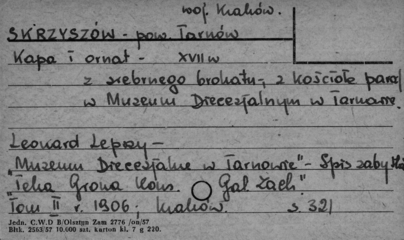 woj. Kraków.
SKRZYSZÓW - pow. Tarnów
Kapa i ornat - XVII w
z srebrnego brokatu, z kościoła paraf
w Muzeum Diecezjalnym w Tarnowie.
Leonard Lepszy -
"Muzeum Diecezjalne w Tarnowie" - Spis zabytk
"Teka Grona Kons. Gal Zach."
Tom II r. 1906. Kraków. s. 321
Jedn. C.W.D B/Olsztyn Zam 2776 /on/57
Bltk. 2583/57 10.000 szt. karton kl. 7 g 220.